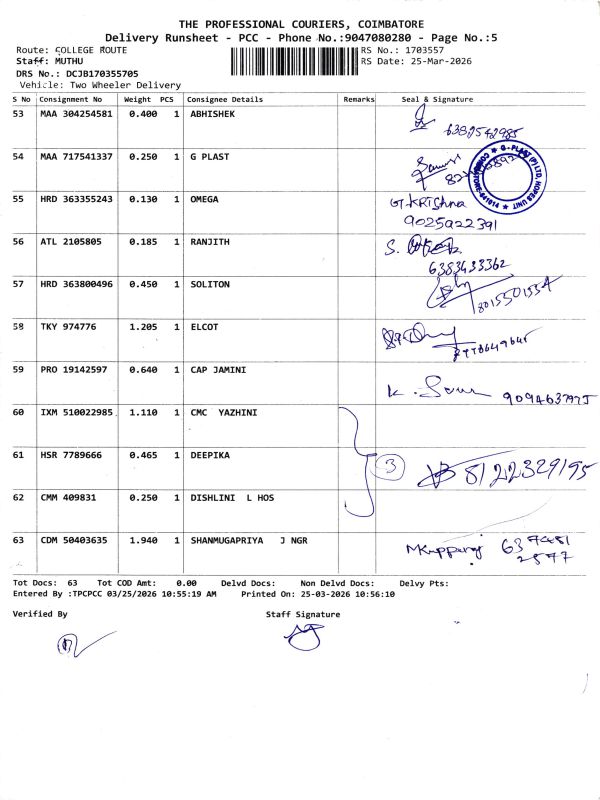 THE PROFESSIONAL COURIERS, COIMBATORE
Delivery Runsheet - PCC - Phone No.:9047080280 - Page No.:5
Route: COLLEGE ROUTE
RS No.: 1703557
Staff: MUTHU
RS Date: 25-Mar-2026
DRS No.: DCJB170355705
Vehicle: Two Wheeler Delivery
S No Consignment No Weight PCS Consignee Details Remarks Seal & Signature
53 MAA 304254581 0.400 1 ABHISHEK
6382542985
54 MAA 717541337 0.250 1 G PLAST
G-PLAST (P) LTD. HOPES UNIT
55 HRD 363355243 0.130 1 OMEGA GT KRIShna
9025922391
56 ATL 2105805 0.185 1 RANJITH S.
6383433362
57 HRD 363800496 0.450 1 SOLITON
8015501554
58 TKY 974776 1.205 1 ELCOT
59 PRO 19142597 0.640 1 CAP JAMINI
K.
60 IXM 510022985 1.110 1 CMC YAZHINI
61 HSR 7789666 0.465 1 DEEPIKA 3 8122329195
62 CMM 409831 0.250 1 DISHLINI L HOS
63 CDM 50403635 1.940 1 SHANMUGAPRIYA J NGR
637481
2877
Tot Docs: 63 Tot COD Amt: 0.00 Delvd Docs: Non Delvd Docs: Delvy Pts:
Entered By :TPCPCC 03/25/2026 10:55:19 AM Printed On: 25-03-2026 10:56:10
Verified By Staff Signature